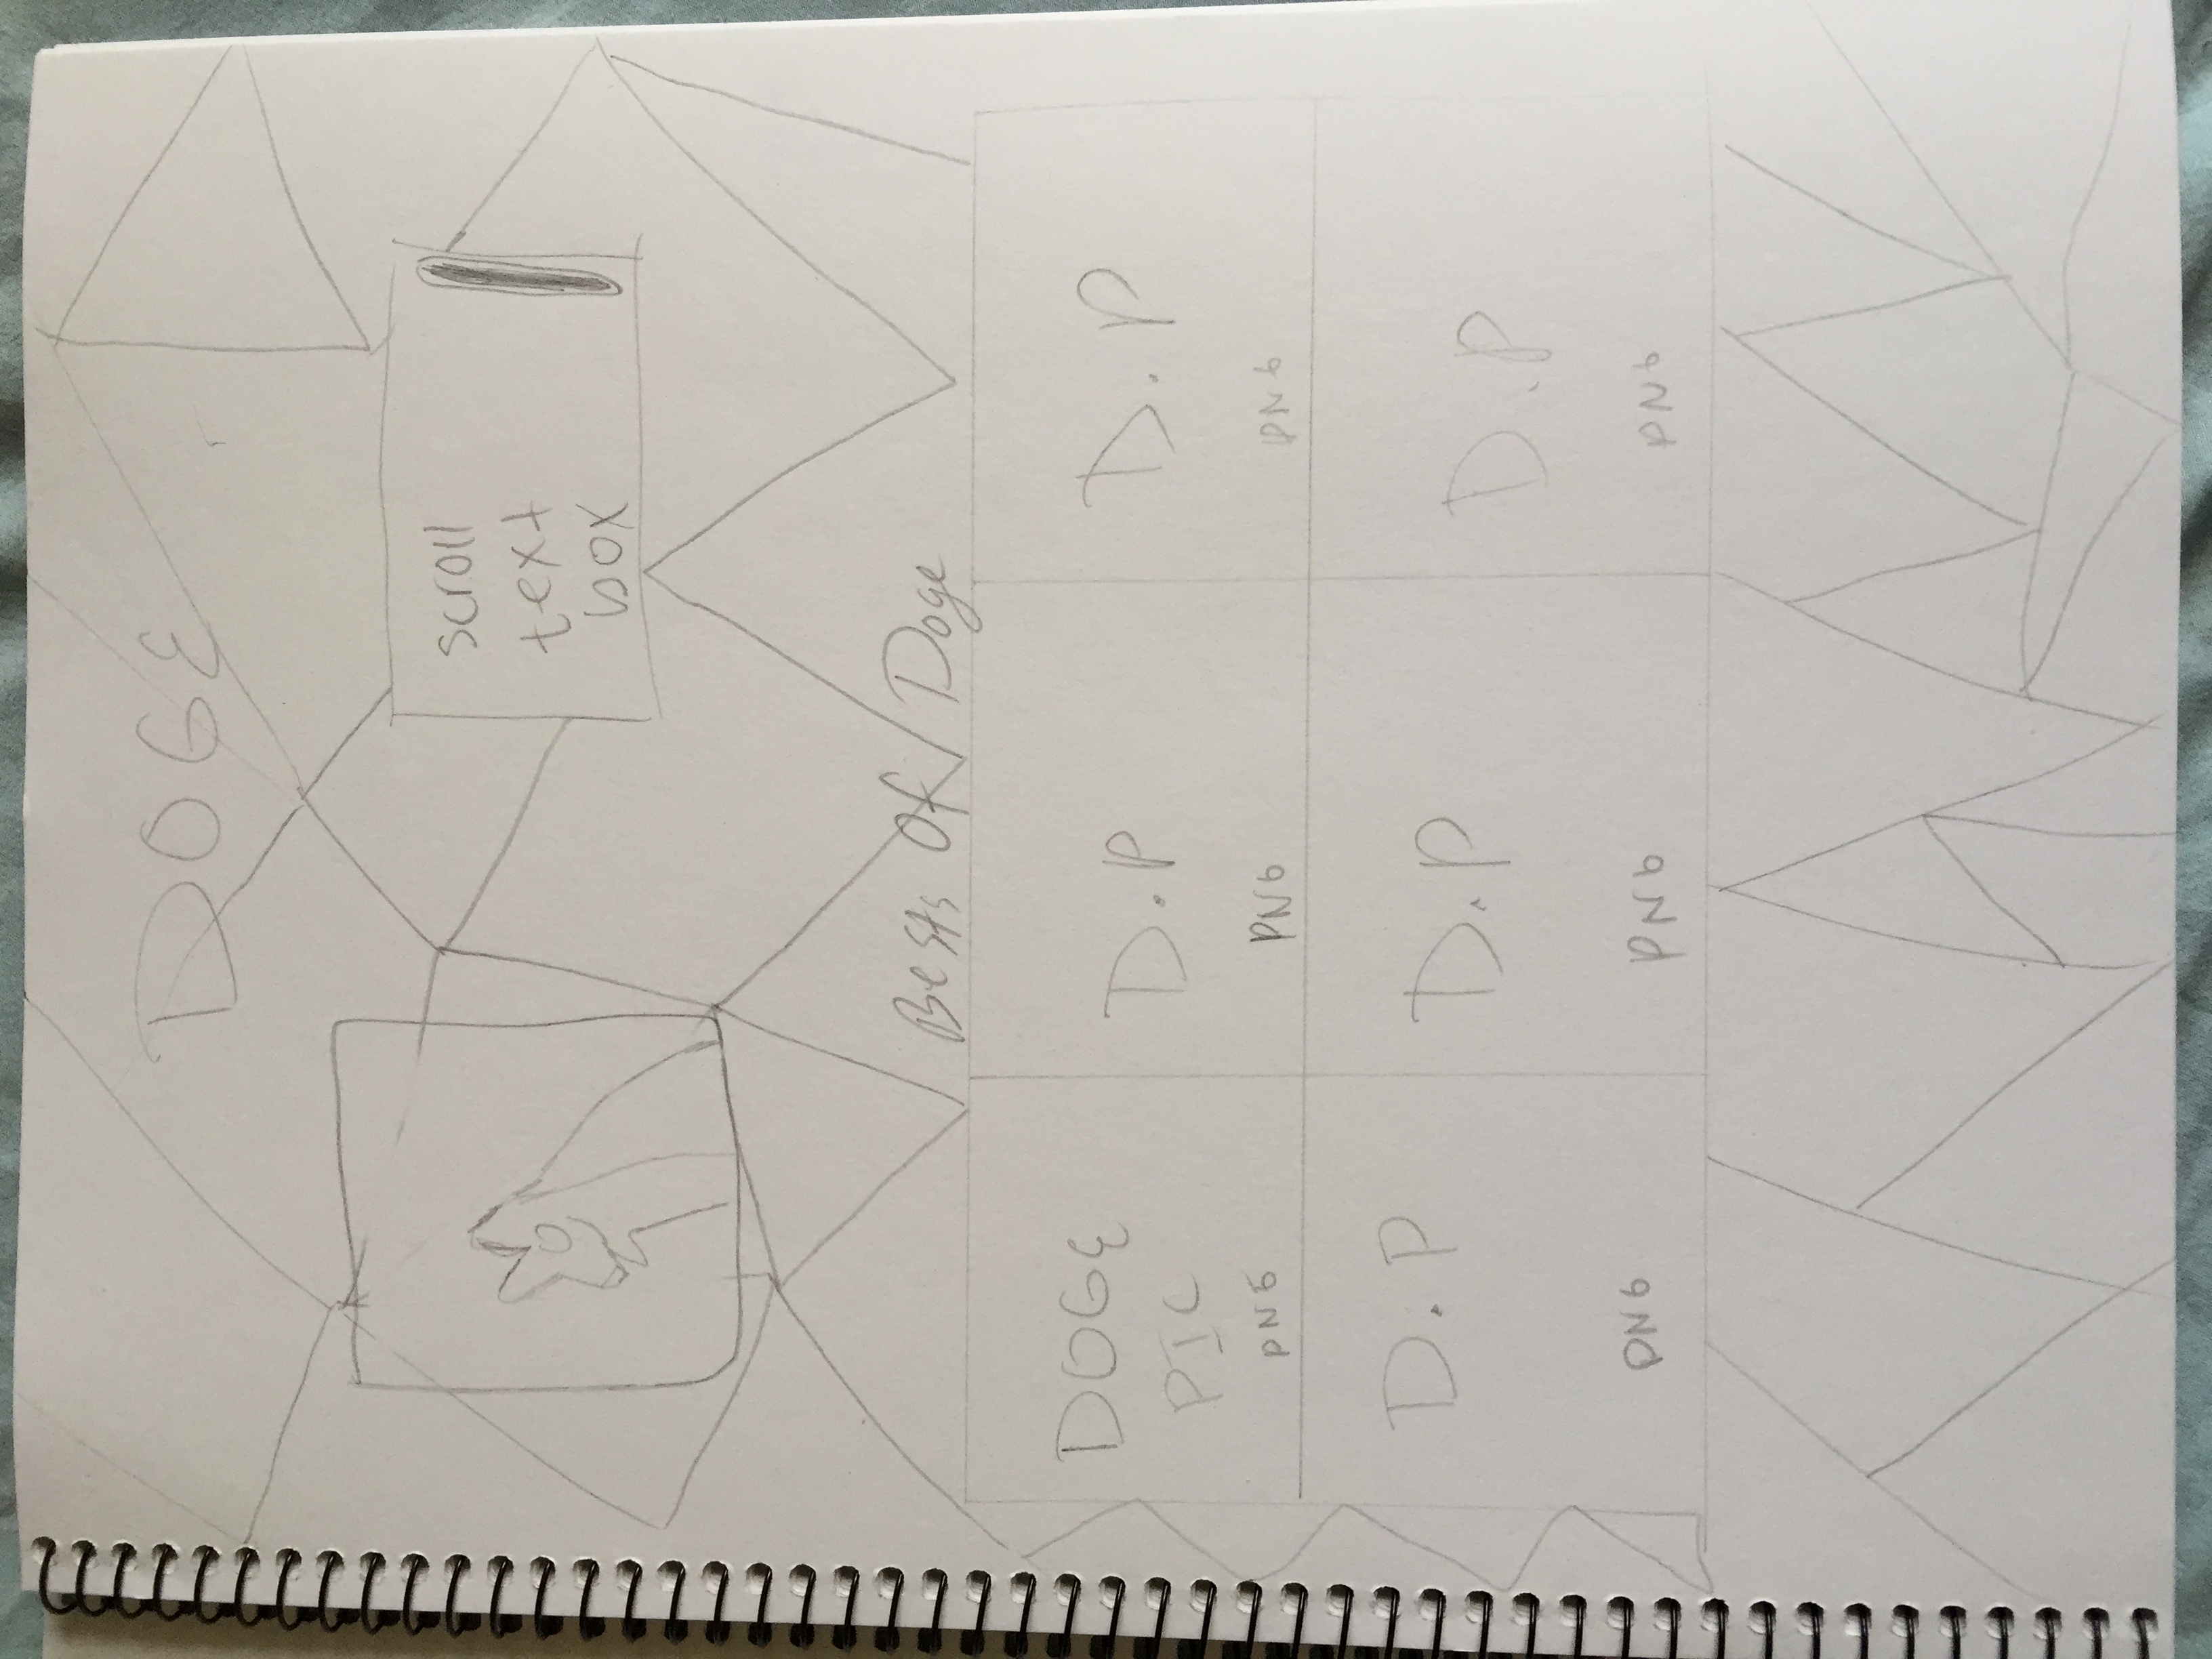 DOGE
scroll
text
box
Bests Of Doge
DOGE
PIC
PNG
D.P
PNG
D.P
PNG
D.P
PNG
D.P
PNG
D.P
PNG